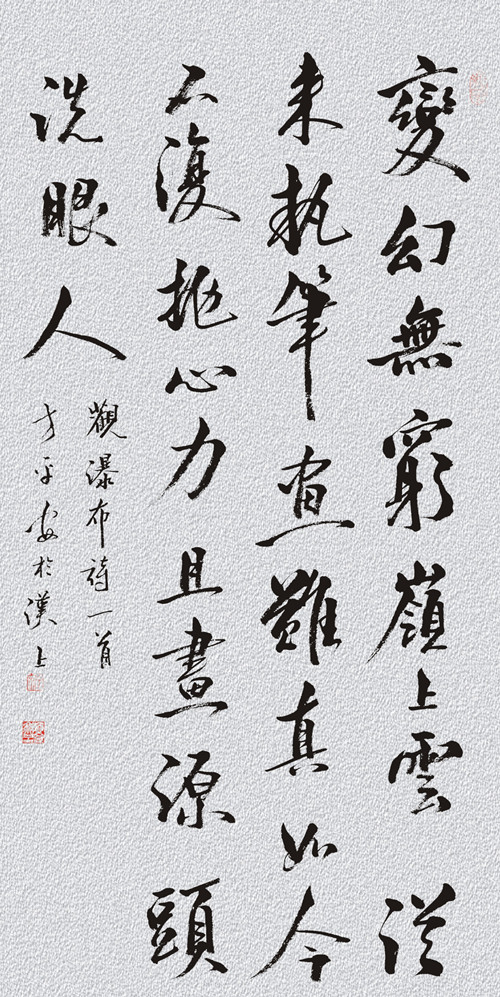 變幻無窮嶺上雲從
来執筆画難真如今
不復拋心力且畫源頭
洗眼人
觀瀑布詩一首
方平安於漢上